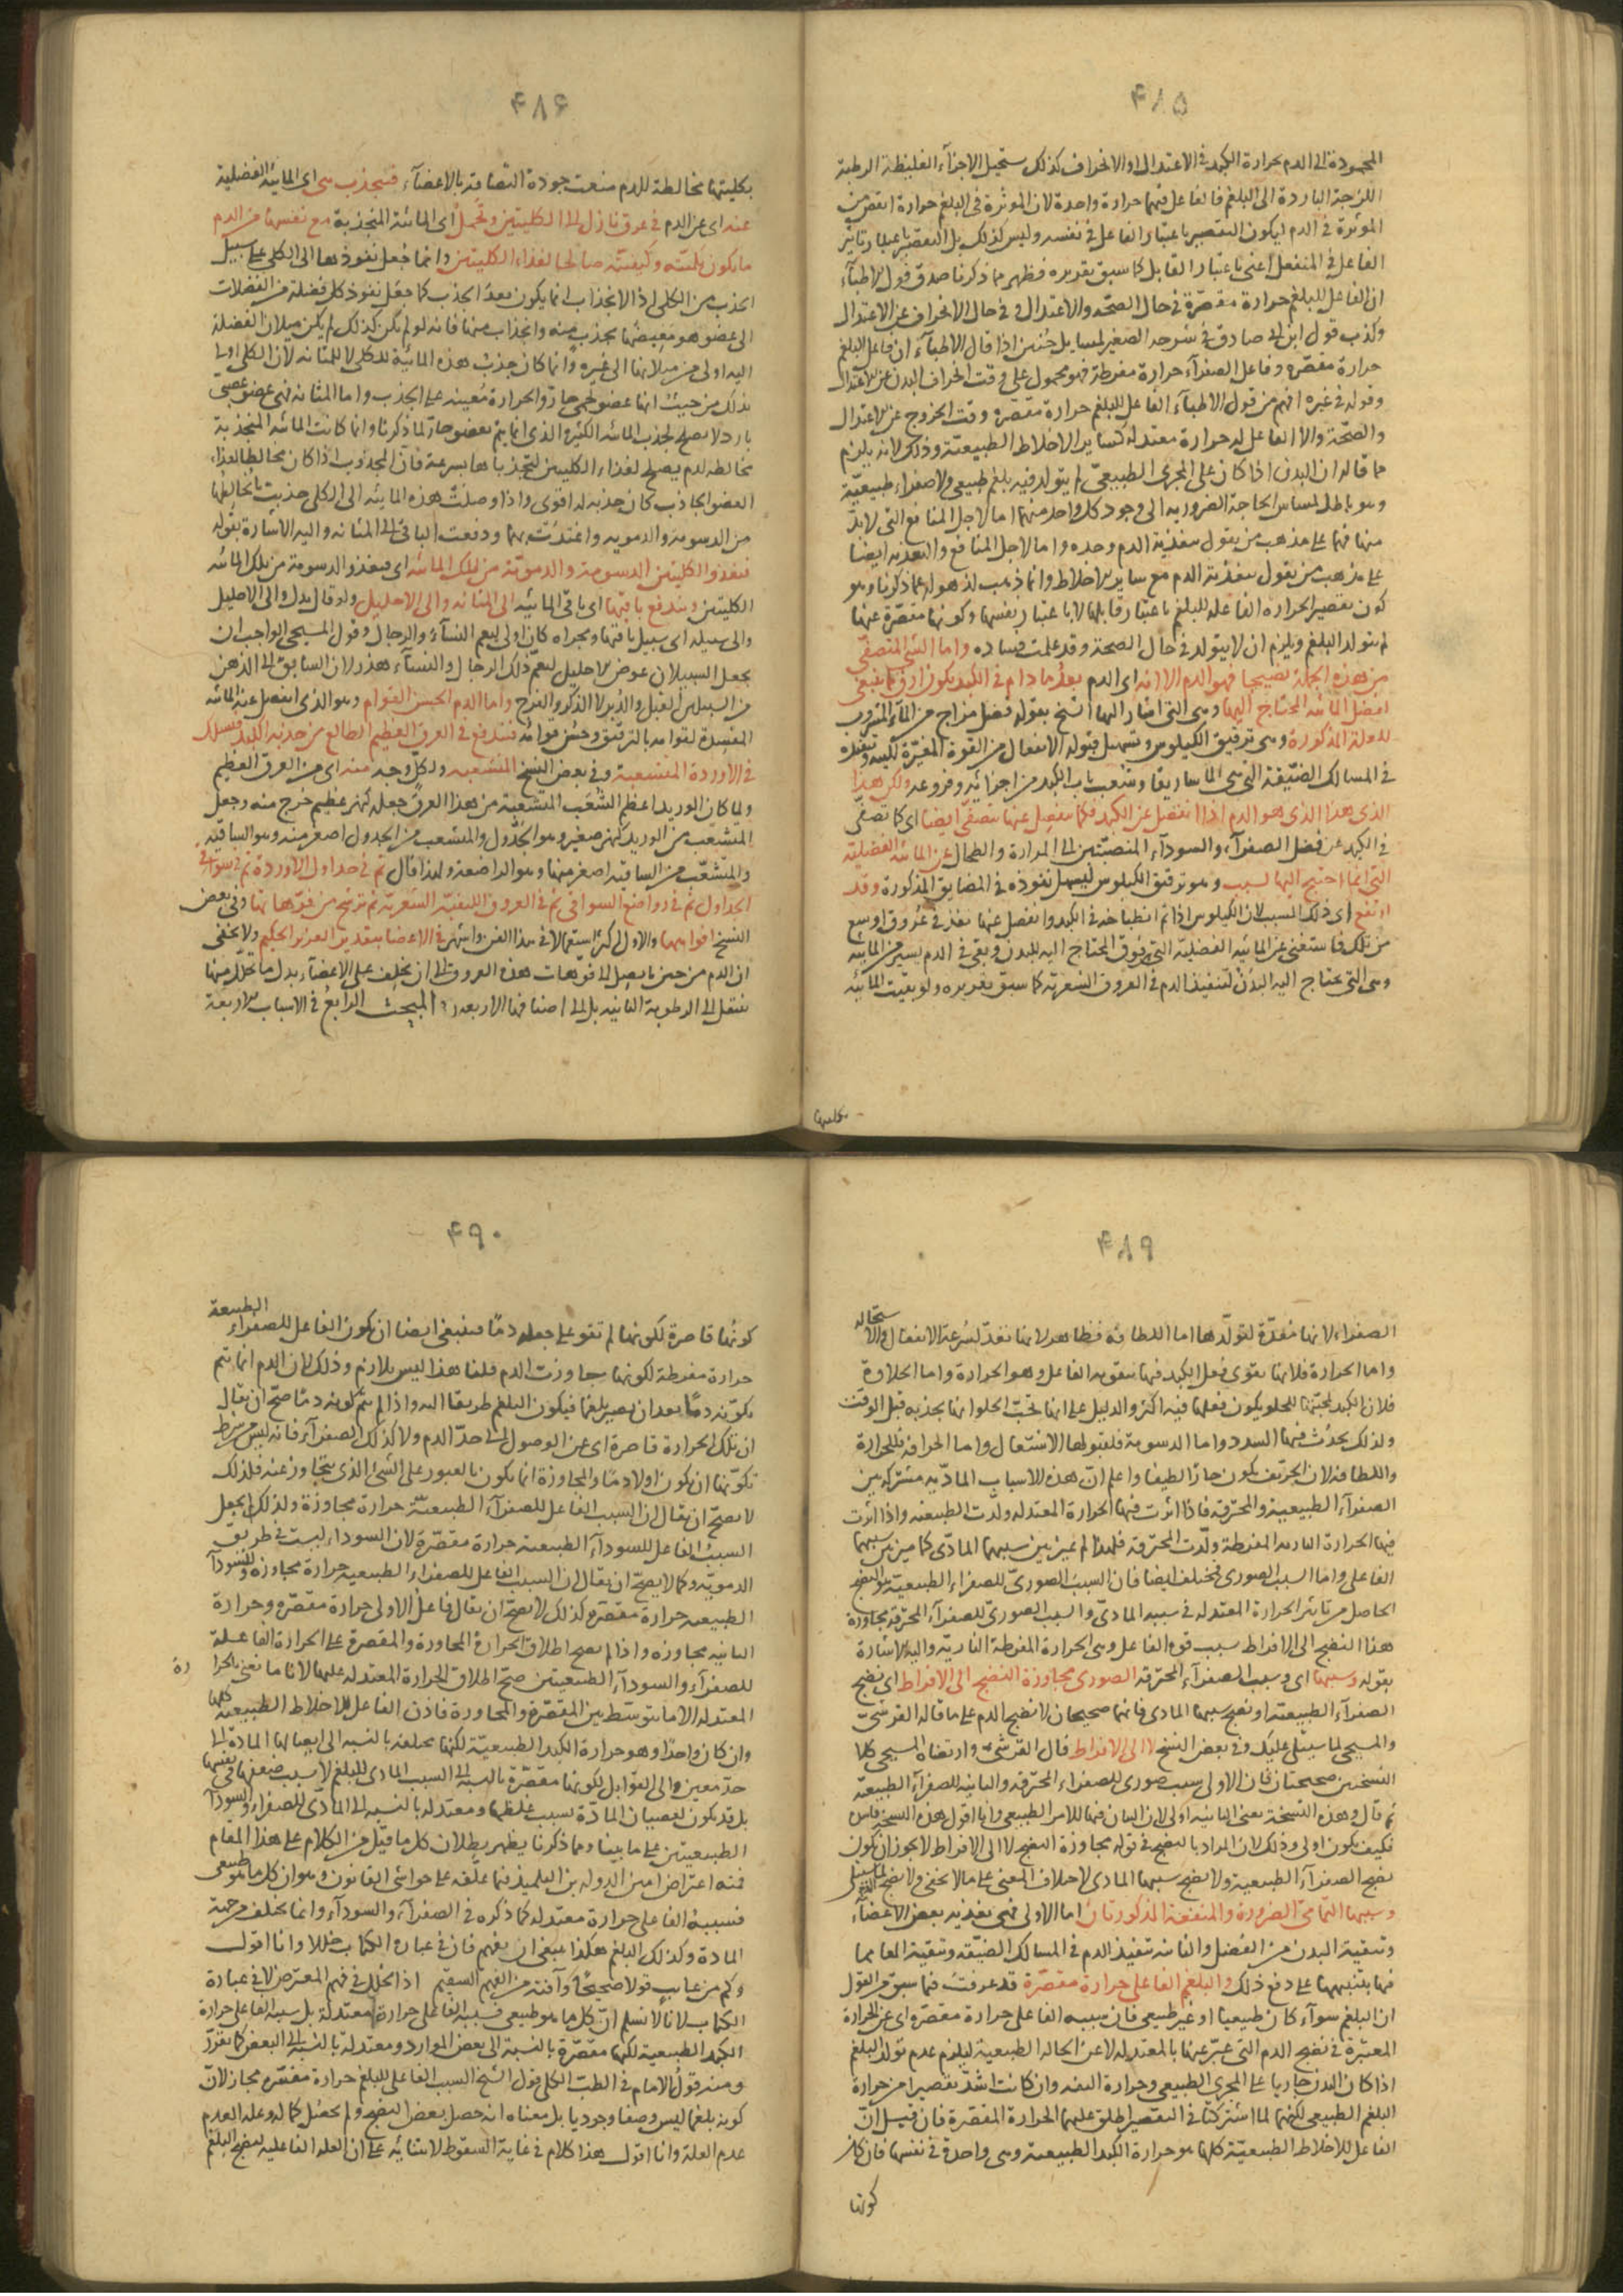 ۴۸۵
المحمودة الى الدم بحرارة الكبد فى الاعتدال او الانحراف كذلك ستحيل الاجزآء الغليظة الرطبة
اللزجة الباردة الى البلغم فالفاعل فيهما حرارة واحدة لان الموثرة فى البلغم حرارة انقص من
الموثرة فى الدم ليكون التقصير باعتبار الفاعل فى نفسه وليس كذلك بل التقصير باعتبار تاثير
الفاعل فى المنفعل اعنى باعتبار القابل كما سبق تقريره فظهر مما ذكرنا صدق قول الاطبآء
ان الفاعل للبلغم حرارة مقصّرة فى حال الصحّة والاعتدال و فى حال الانحراف عن الاعتدال
وكذب قول ابن ابى صادق فى شرحه الصغير لمسايل حنين اذا قال الاطبآء ان فاعل البلغم
حرارة مقصّرة وفاعل الصفرآء حرارة مفرطة فهو محمول على وقت انحراف البدن عن الاعتدال
وقوله فى غيره افهم من قول الاطبآء الفاعل للبلغم حرارة مقصّرة وقت الخروج عن الاعتدال
والصحّة والا الفاعل له حرارة معتدلة كساير الاخلاط الطبيعيّة وذلك لانه يلزم
مما قاله ان البدن اذا كان على المجرى الطبيعىّ لم يتولد فيه بلغم طبيعى ولا صفراء طبيعيّة
وهو باطل لمساس الحاجة الضرورية الى وجود كل واحد منهما اما لاجل المنافع التى لا بدّ
منها فيهما على مذهب من يقول بتغذية الدم وحده واما لاجل المنافع والتغذية ايضا
على مذهب من يقول بتغذية الدم مع ساير الاخلاط وانما ذهب لذهوله عما ذكرنا وهو
كون تقصير الحرارة الفاعلة للبلغم باعتبار قابلها لا باعتبار نفسها وكونها مقصّرة عنها
لم يتولد البلغم ويلزم ان لا يتولد فى حال الصحة وقد علمت فساده واما الشئ المتصفّى
من هذه الجملة نضيجا فهو الدم الا انه اى الدم بعد ما دام فى الكبد يكون ارق مما ينبغى
لفضل المائية المحتاج اليها وهى التى اشار اليها الشيخ بقوله فضل مزاج من المآء المشروب
للعلة المذكورة وهى ترقيق الكيلوس وتسهيل قبوله الانفعال من القوة المغيّرة لكبديه وتنفيذه
فى المسالك الضيّقة التى هى الماساريقا وشعب باب الكبد من اجزائه وفروعه ولكن هذا
الذى هذا الذى هو الدم اذا انفصل عن الكبد فكما ينفصل عنها يتصفّى ايضا اى كما تصفّى
فى الكبد عن فضل الصفرآء والسودآء المنصبّتين الى المرارة والطحال عن المائية الفضليّة
التى انما احتيج اليها لسبب وهو ترقيق الكيلوس ليسهل نفوذه فى المضايق المذكورة وقد
ارتفع اى ذلك السبب لان الكيلوس اذا تم انطباخه فى الكبد وانفصل عنها نفذ فى عروق اوسع
من تلك فاستغنى عن المائية الفضليّة التى فوق المحتاج اليه للبدن وبقى فى الدم يسير من المائية
وهى التى يحتاج اليه البدن لتنفيذ الدم فى العروق الشعريّة كما سبق تقريره ولو بقيت المائية
بكليتها
۴۸۶
بكليتها مخالطة للدم منعت جودة التصاقه بالاعضآء فتنجذب هى اى المائية الفضلية
عنه اى عن الدم فى عرق نازل الى الكليتين وتحمل اى المائية المنجذبة مع نفسها من الدم
ما يكون بكميّته وكيفيّته صالحا لغذاء الكليتين وانما جُعل نفوذها الى الكلى على سبيل
الجذب من الكلى اذ الانجذاب انما يكون بعد الجذب كما جعل نفوذ كل فضلة من الفضلات
الى عضو هو مغيضها بجذب منه وانجذاب منها فانه لو لم يكن كذلك لم يكن ميلان الفضلة
اليه اولى من ميلانها الى غيره وانما كان جذب هذه المائية للكلى لا للمثانة لان الكلى اولى
بذلك من حيث انها عضو لحمى حارّ والحرارة مُعينة على الجذب واما المثانة فهى عضو عصبى
بارد لا يصلح لجذب المائية الكثيرة الذى انما يتم بعضو حارّ لما ذكرنا وانما كانت المائية المنجذبة
مخالطة لدم يصلح لغذاء الكليتين لتجذباها بسرعة فان المجذوب اذا كان مخالطا لغذاء
العضو الجاذب كان جذبه له اقوى واذا وصلت هذه المائية الى الكلى جذبت ما يخالطها
من الدسومة والدموية واغتذت بهما ودفعت الباقى الى المثانة واليه الاشارة بقوله
فتغذو الكليتين الدسومة والدمويّة من تلك المائية اى فتغذو الدسومة من تلك المائية
الكليتين ويندفع باقيها اى باقى المائية الى المثانة والى الاحليل ولو قال بدل والى الاحليل
والى سبيله اى سبيل باقيها ومجراه كان اولى ليعم النسآء والرجال وقول المسيحى الواجب ان
يجعل السبيلان عوض الاحليل ليعمّ ذلك الرجال والنسآء هذر لان السابق الى الذهن
من السبيلين القبل والدبر لا الذكر والفرج واما الدم الحسن القوام وهو الذى انفصل عنه المائية
المفسدة لقوامه بالترقيق وحسن قوامه فتندفع فى العرق العظيم الطالع من حدبة الكبد فيسلك
فى الاوردة المتشعبة وفى بعض النسخ المنشعبة ولكل وجه منه اى من العرق العظيم
ولما كان الوريد اعظم الشعب المتشعبة من هذا العرق جعله كنهر عظيم خرج منه وجعل
المتشعّب من الوريد كنهر صغير وهو الجدول والمتشعب من الجدول اصغر منه وهو الساقية
والمتشعّب من الساقية اصغر منها وهو الراضعة ولهذا قال ثم فى جداول الاوردة ثم فى سواقى
الجداول ثم فى رواضع السواقى ثم فى العروق الليفيّة الشعريّة ثم ترشح من فوّهاتها وفى بعض
النسخ افواهها والاول اكثر استعمالا فى هذا الفن واشهر فى الاعضا بتقدير العزيز الحكيم ولا يخفى
ان الدم من حين ما يصل الى فوّهات هذه العروق الى ان يخلف على الاعضآء بدل ما تحلل منها
ينتقل الى الرطوبة الثانية بل الى اصنافها الاربعة المبحث الرابع فى الاسباب الاربعة
۴۸۹
الصفراء لانها مُعدّة لتولّدها اما اللطافة فظاهر لانها تعدّ لسرعة الانفعال والاستحالة
واما الحرارة فلانها تقوى فعل الكبد فيها بتقوية الفاعل وهو الحرارة واما الحلاوة
فلان الكبد لمحبّتها للحلو يكون فعلها فيه اكثر والدليل على انها تحبّ الحلو انها تجذبه قبل الوقت
ولذلك يحدُث فيها السدد واما الدسومة فلقبولها الاشتعال واما الحرافة فللحرارة
واللطافة لان الحرّيف يكون حارّا لطيفا واعلم انّ هذه الاسباب المادّية مشتركة بين
الصفرآء الطبيعية والمحترقة فاذا اثرت فيها الحرارة المعتدلة ولّدت الطبيعية واذا اثرت
فيها الحرارة النارية المفرطة ولّدت المحترقة فلهذا لم يميز بين سببهما المادّى كما ميز بين سببهما
الفاعلى واما السبب الصورى فمختلف ايضا فان السبب الصورىّ للصفراء الطبيعيّة هو النضج
الحاصل من تاثير الحرارة المعتدلة فى سببه المادىّ والسبب الصورىّ للصفرآء المحترقة مجاوزة
هذا النضج الى الافراط بسبب قوة الفاعل وهى الحرارة المفرطة الناريّة واليه الاشارة
بقوله وسببها اى وسبب الصفرآء المحترقة الصورى مجاوزة النضج الى الافراط اى نضج
الصفرآء الطبيعية او نضج سببها المادى فانهما صحيحان لا نضج الدم على ما قاله القرشىّ
والمسيحى لما سيتلى عليك وفى بعض النسخ لا الى الافراط قال القرشى وارتضاه المسيحى كلا
النسختين صحيحتان فان الاولى سبب صورى للصفراء المحترقة والثانية للصفرآء الطبيعية
ثم قال وهذه النسخة يعنى الثانية اولى لان البيان فيها للامر الطبيعى وانا اقول هذه النسخة فاسدة
فكيف يكون اولى وذلك لان المراد بالنضج فى قوله مجاوزة النضج لا الى الافراط لا يجوز ان يكون
نضج الصفرآء الطبيعية ولا نضج سببها المادى لاختلاف المعنى على ما لا يخفى ولا نضج الدم لما سيتلى
وسببها التمامى الضرورة والمنفعة المذكورتان اما الاولى فهى تغذية بعض الاعضآء
وتنقية البدن من الفضل والثانية تنفيذ الدم فى المسالك الضيّقة وتنقية المعا مما
فيها بتنبيهها على دفع ذلك والبلغم الفاعلى حرارة مقصّرة قد عرفت فيما سبق من القول
ان البلغم سوآء كان طبيعيا او غير طبيعى فان سببه الفاعلى حرارة مقصّرة اى عن الحرارة
المعتبرة فى نضج الدم التى عبّر عنها بالمعتدلة لا عن الحالة الطبيعية ليلزم عدم تولد البلغم
اذا كان البدن جاريا على المجرى الطبيعى وحرارة التفه وان كانت اشدّ تقصيرا من حرارة
البلغم الطبيعى لكنهما لما اشتركتا فى التقصير اطلق عليهما الحرارة المقصّرة فان قيل انّ
الفاعل للاخلاط الطبيعيّة كلها هو حرارة الكبد الطبيعية وهى واحدة فى نفسها فان كان
كونها
۴۹۰
كونُها قاصرة لكونها لم تقو على جعله دمًا فينبغى ايضا ان يكون الفاعل للصفراء الطبيعة
حرارة مفرطة لكونها جاوزت الدم قلنا هذا ليس بلازم وذلك لان الدم انما يتم
تكوّنه دمًا بعد ان يصير بلغما فيكون البلغم طريقا اليه واذا لم يتم كونه دمًا صحّ ان يقال
ان تلك الحرارة قاصرة اى عن الوصول الى حدّ الدم ولا كذلك الصفرآء فانه ليس من شرط
تكوّنها ان يكون اولا دمًا والمجاوزة انما يكون بالعبور على الشئ الذى يتجاوز عنه فلذلك
لا يصحّ ان يقال ان السبب الفاعل للصفرآء الطبيعيّة حرارة مجاوزة ولذلك لم يجعل
السبب الفاعل للسودآء الطبيعية حرارة مقصّرة لان السوداء ليست فى طريق
الدمويّة وكما لا يصحّ ان يقال ان السبب الفاعل للصفراء الطبيعية حرارة مجاوزة وللسودآء
الطبيعية حرارة مقصّرة كذلك لا يصحّ ان يقال فاعل الاولى حرارة مقصّرة وحرارة
الثانية مجاوزة واذا لم يصح اطلاق الحرارة المجاوزة والمقصرة على الحرارة الفاعلة
للصفرآء والسودآء الطبيعيتين صحّ اطلاق الحرارة المعتدلة عليها لانا ما نعنى بالحرارة
المعتدلة الا ما يتوسّط بين المقصّرة والمجاوزة فاذن الفاعل للاخلاط الطبيعية كلها
وان كان واحدًا وهو حرارة الكبد الطبيعيّة لكنها مختلفة بالنسبة الى ايصالها المادة الى
حدّ معين والى القوابل لكونها مقصّرة بالنسبة الى السبب المادى للبلغم لا بسبب ضعفها فى نفسها
بل قد يكون لعصيان المادّة بسبب غلظها ومعتدلة بالنسبة الى المادّى للصفراء والسودآء
الطبيعيتين على ما بينا ومما ذكرنا يظهر بطلان كل ما قيل من الكلام على هذا المقام
فمنه اعتراض امين الدولة بن التلميذ فيما علّقه على حواشى القانون وهو ان كل ما هو طبيعى
فسببه الفاعلى حرارة معتدلة كما ذكره فى الصفرآء والسودآء وانما يختلف من جهة
المادة وكذلك البلغم هكذا ينبغى ان يفهم فان فى عبارة الكتاب خللا وانا اقول
وكم من عايب قولا صحيحًا وآفته من الفهم السقيم اذ الخلل فى فهم المعترض لا فى عبارة
الكتاب لانا لا نسلم انّ كل ما هو طبيعى فسببه الفاعلى حرارة معتدلة بل سببه الفاعلى حرارة
الكبد الطبيعية لكنها مقصّرة بالنسبة الى بعض الموارد ومعتدلة بالنسبة الى البعض كما تقرّر
ومنه قول الامام فى الطب الكلى قول الشيخ السبب الفاعلى للبلغم حرارة مقصّرة مجاز لانّ
كونه بلغما ليس وصفا وجوديا بل معناه انه حصل بعض النضج ولم يحصل كماله وعلة العدم
عدم العلة وانا اقول هذا كلام فى غاية السقوط لابتنائه على ان العلة الفاعلية لنضج البلغم